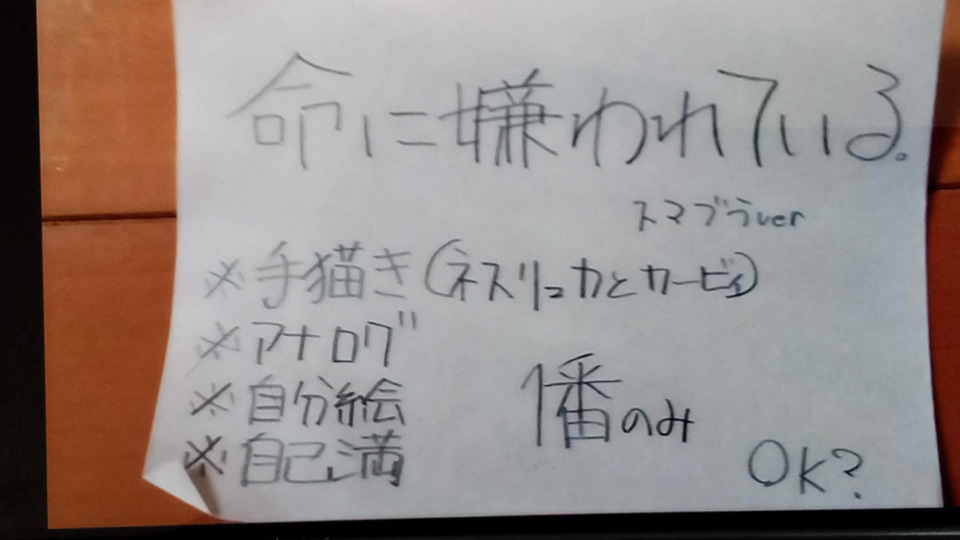 命に嫌われている.
スマブラver
※手描き(ネスリュカとカービィ)
※アナログ
※自分絵
※自己満
1番のみ
OK?